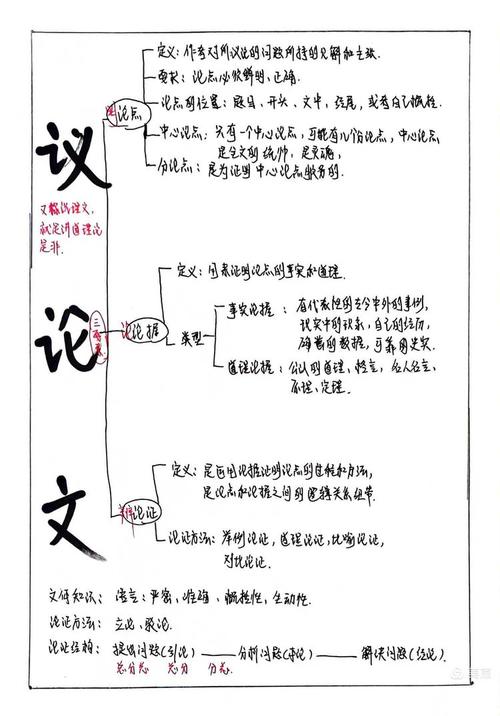 议论文
又称说理文,
就是讲道理论
是非.
三要素
论点
定义:作者对所议论的问题所持的见解和主张.
要求:论点必须鲜明、正确.
论点的位置:题目、开头、文中、结尾,或者自己概括.
中心论点:只有一个中心论点,可能有几个份论点,中心论点
是全文的统帅,是灵魂,
分论点:是为证明中心论点服务的.
论据
定义:用来证明论点的事实和道理.
类型
事实论据:有代表性的古今中外的事例,
现实中的现象,自己的经历,
确凿的数据,可靠的史实.
道理论据:公认的道理、格言、名人名言、
原理、定理.
论证
定义:是运用论据证明论点的过程和方法,
是论点和论据之间的逻辑关系纽带.
论证方法:举例论证,道理论证,比喻论证,
对比论证.
文体知识:语言:严密、准确、概括性、生动性.
论证方法:立论、驳论.
论证结构:提出问题(引论)——分析问题(本论)——解决问题(结论).
总分总 总分 分总